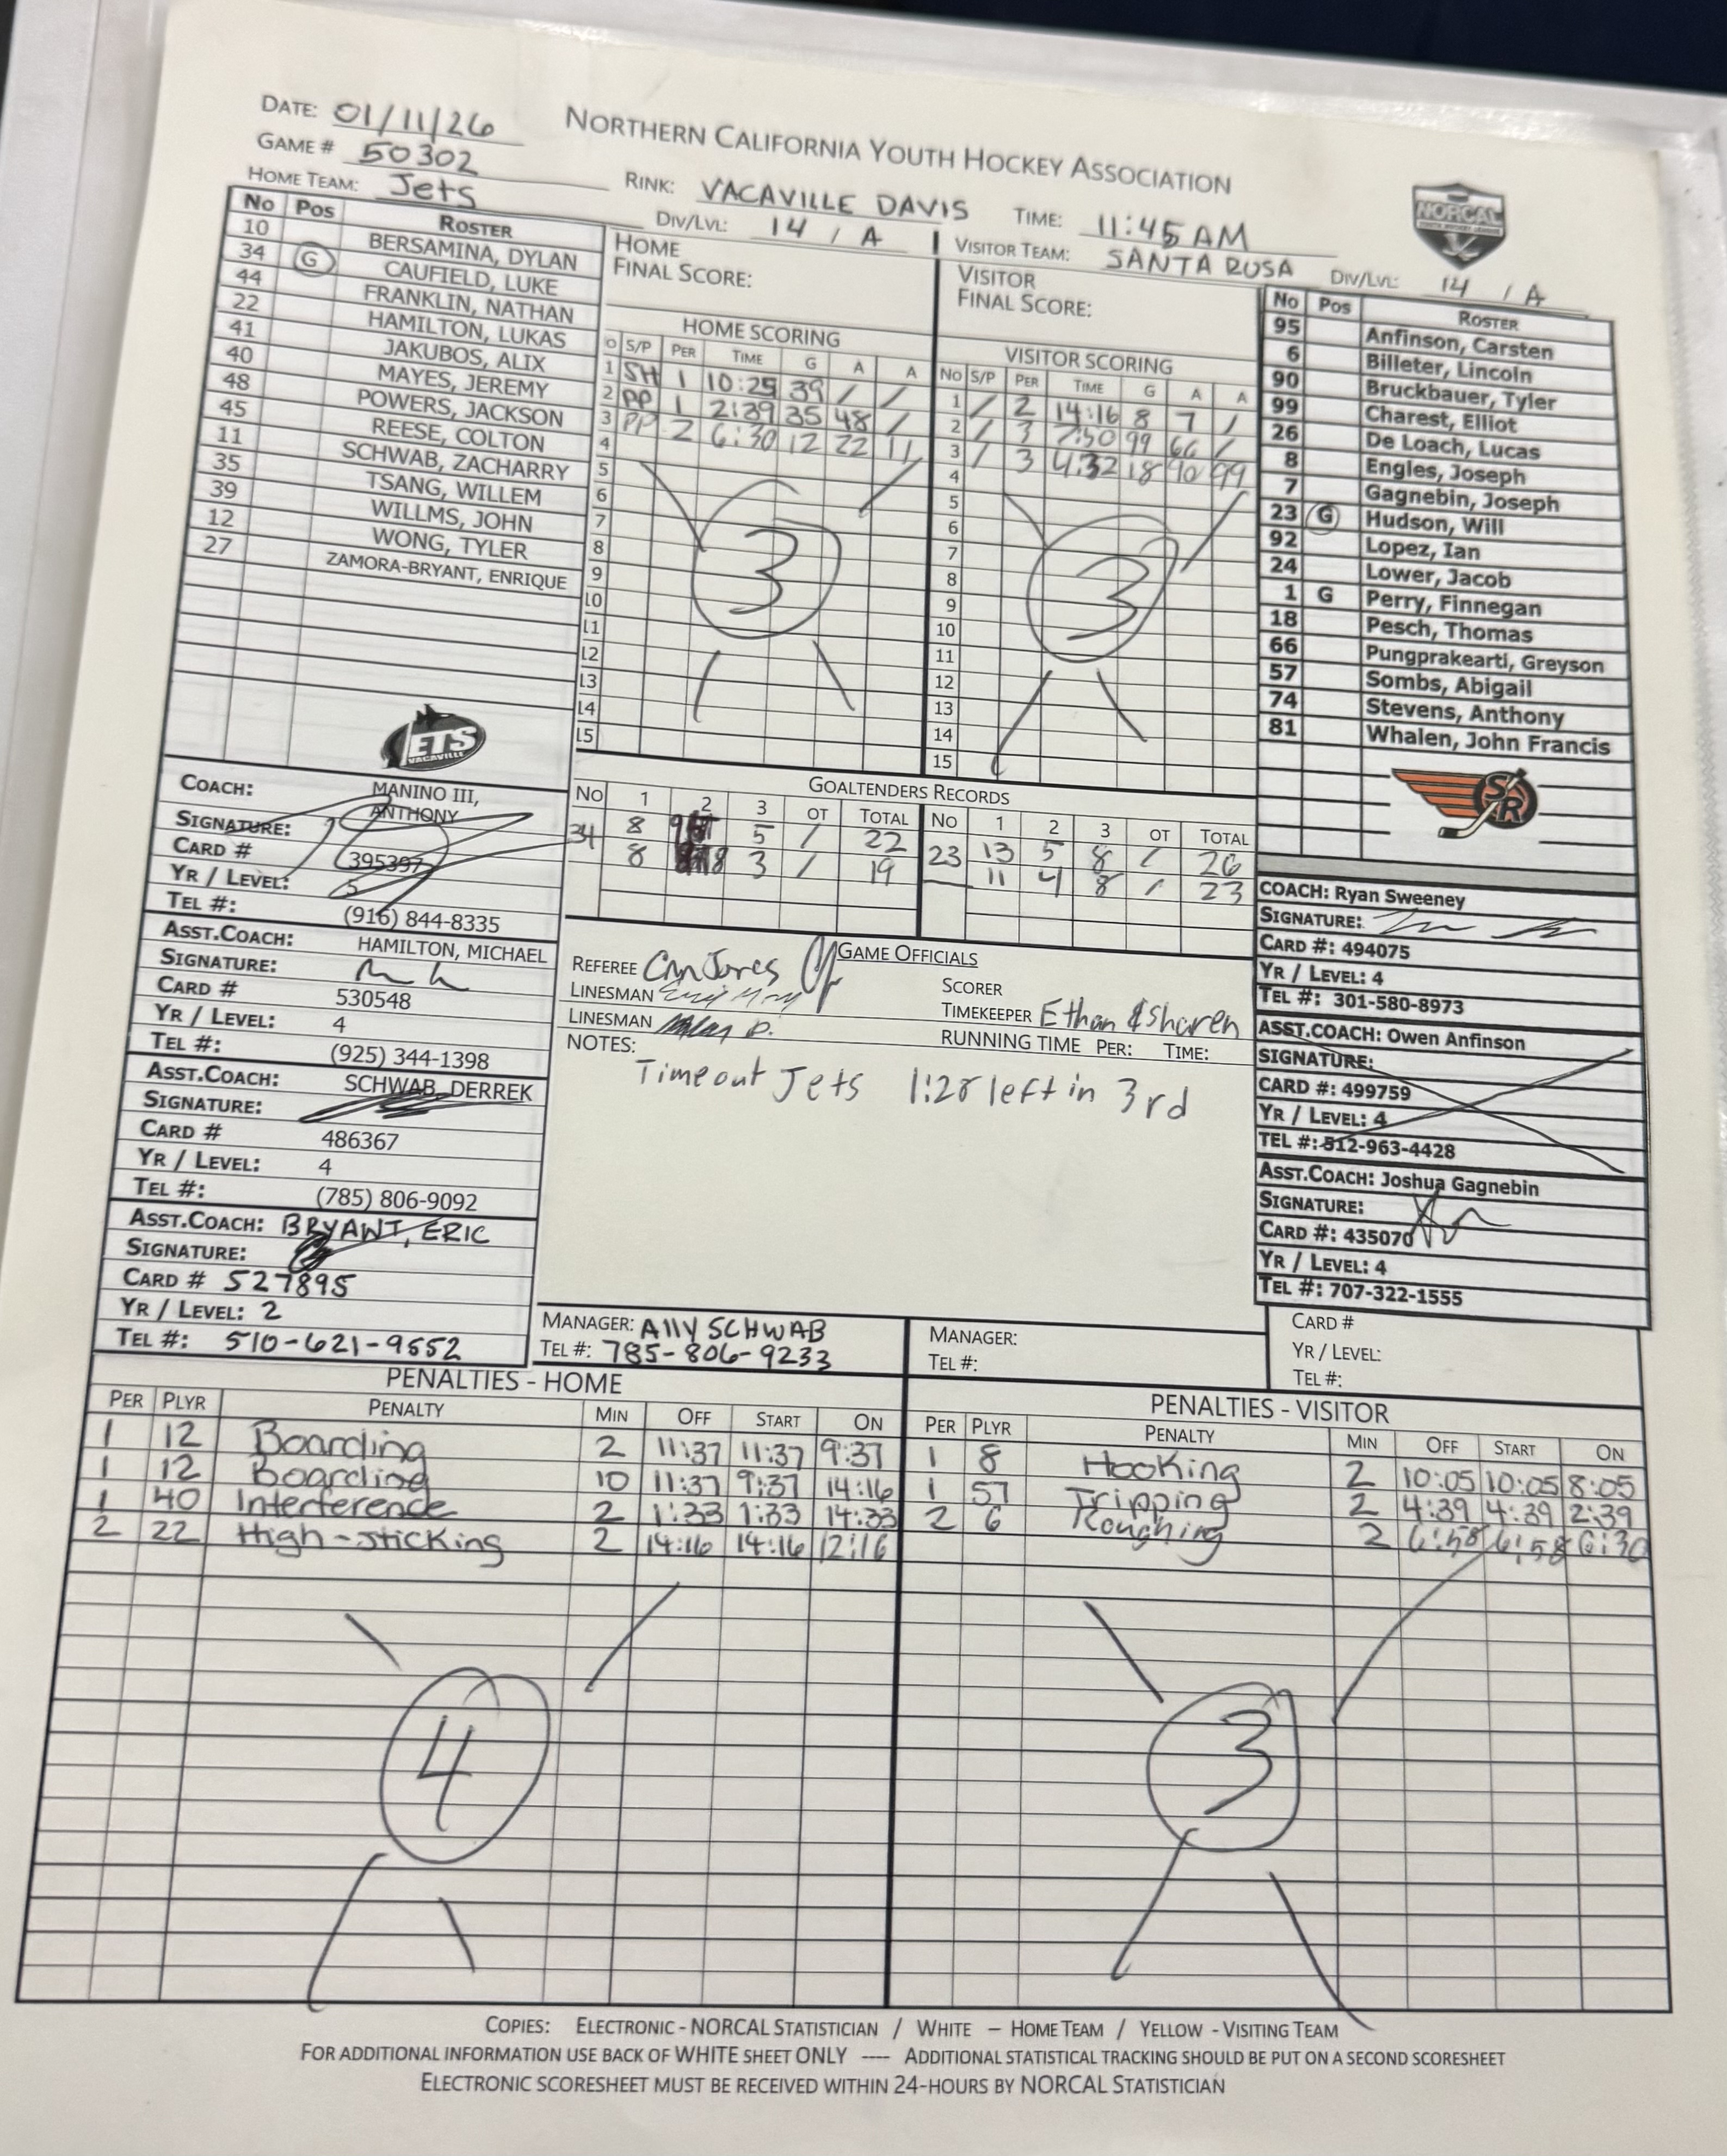 DATE: 01/11/26
NORTHERN CALIFORNIA YOUTH HOCKEY ASSOCIATION
GAME # 50302
HOME TEAM: Jets
RINK: VACAVILLE DAVIS TIME: 11:45 AM
DIV/LVL: 14 / A
VISITOR TEAM: SANTA ROSA DIV/LVL: 14 / A
NORCAL
No Pos ROSTER
10 BERSAMINA, DYLAN
34 G CAUFIELD, LUKE
44 FRANKLIN, NATHAN
22 HAMILTON, LUKAS
41 JAKUBOS, ALIX
40 MAYES, JEREMY
48 POWERS, JACKSON
45 REESE, COLTON
11 SCHWAB, ZACHARRY
35 TSANG, WILLEM
39 WILLMS, JOHN
12 WONG, TYLER
27 ZAMORA-BRYANT, ENRIQUE
JETS
VACAVILLE
HOME
FINAL SCORE:
HOME SCORING
O S/P PER TIME G A A
1 SH 1 10:25 39 / /
2 PP 1 2:39 35 48 /
3 PP 2 6:30 12 22 11
4
5
6
7
8
9
10
11
12
13
14
15
3
VISITOR
FINAL SCORE:
VISITOR SCORING
No S/P PER TIME G A A
1 / 2 14:16 8 7 /
2 / 3 7:50 99 66 /
3 / 3 4:32 18 90 99
4
5
6
7
8
9
10
11
12
13
14
15
3
No Pos ROSTER
95 Anfinson, Carsten
6 Billeter, Lincoln
90 Bruckbauer, Tyler
99 Charest, Elliot
26 De Loach, Lucas
8 Engles, Joseph
7 Gagnebin, Joseph
23 G Hudson, Will
92 Lopez, Ian
24 Lower, Jacob
1 G Perry, Finnegan
18 Pesch, Thomas
66 Pungprakearti, Greyson
57 Sombs, Abigail
74 Stevens, Anthony
81 Whalen, John Francis
SR
GOALTENDERS RECORDS
No 1 2 3 OT TOTAL No 1 2 3 OT TOTAL
34 8 9 5 / 22 23 13 5 8 / 26
8 8 3 / 19 11 4 8 / 23
COACH: MANINO III, ANTHONY
SIGNATURE:
CARD # 395397
YR / LEVEL: 5
TEL #: (916) 844-8335
ASST.COACH: HAMILTON, MICHAEL
SIGNATURE:
CARD # 530548
YR / LEVEL: 4
TEL #: (925) 344-1398
ASST.COACH: SCHWAB, DERREK
SIGNATURE:
CARD # 486367
YR / LEVEL: 4
TEL #: (785) 806-9092
ASST.COACH: BRYANT, ERIC
SIGNATURE:
CARD # 527895
YR / LEVEL: 2
TEL #: 510-621-9552
GAME OFFICIALS
REFEREE
LINESMAN
LINESMAN
SCORER
TIMEKEEPER Ethan & Sharen
RUNNING TIME PER: TIME:
NOTES:
Timeout Jets 1:28 left in 3rd
COACH: Ryan Sweeney
SIGNATURE:
CARD #: 494075
YR / LEVEL: 4
TEL #: 301-580-8973
ASST.COACH: Owen Anfinson
SIGNATURE:
CARD #: 499759
YR / LEVEL: 4
TEL #: 512-963-4428
ASST.COACH: Joshua Gagnebin
SIGNATURE:
CARD #: 435070
YR / LEVEL: 4
TEL #: 707-322-1555
CARD #
YR / LEVEL:
TEL #:
MANAGER: Ally SCHWAB
TEL #: 785-806-9233
MANAGER:
TEL #:
PENALTIES - HOME
PER PLYR PENALTY MIN OFF START ON
1 12 Boarding 2 11:37 11:37 9:37
1 12 Boarding 10 11:37 9:37 14:16
1 40 Interference 2 1:33 1:33 14:33
2 22 High-sticking 2 14:16 14:16 12:16
4
PENALTIES - VISITOR
PER PLYR PENALTY MIN OFF START ON
1 8 Hooking 2 10:05 10:05 8:05
1 57 Tripping 2 4:39 4:39 2:39
2 6 Roughing 2 6:58 6:58 6:30
3
COPIES: ELECTRONIC - NORCAL STATISTICIAN / WHITE – HOME TEAM / YELLOW - VISITING TEAM
FOR ADDITIONAL INFORMATION USE BACK OF WHITE SHEET ONLY ---- ADDITIONAL STATISTICAL TRACKING SHOULD BE PUT ON A SECOND SCORESHEET
ELECTRONIC SCORESHEET MUST BE RECEIVED WITHIN 24-HOURS BY NORCAL STATISTICIAN